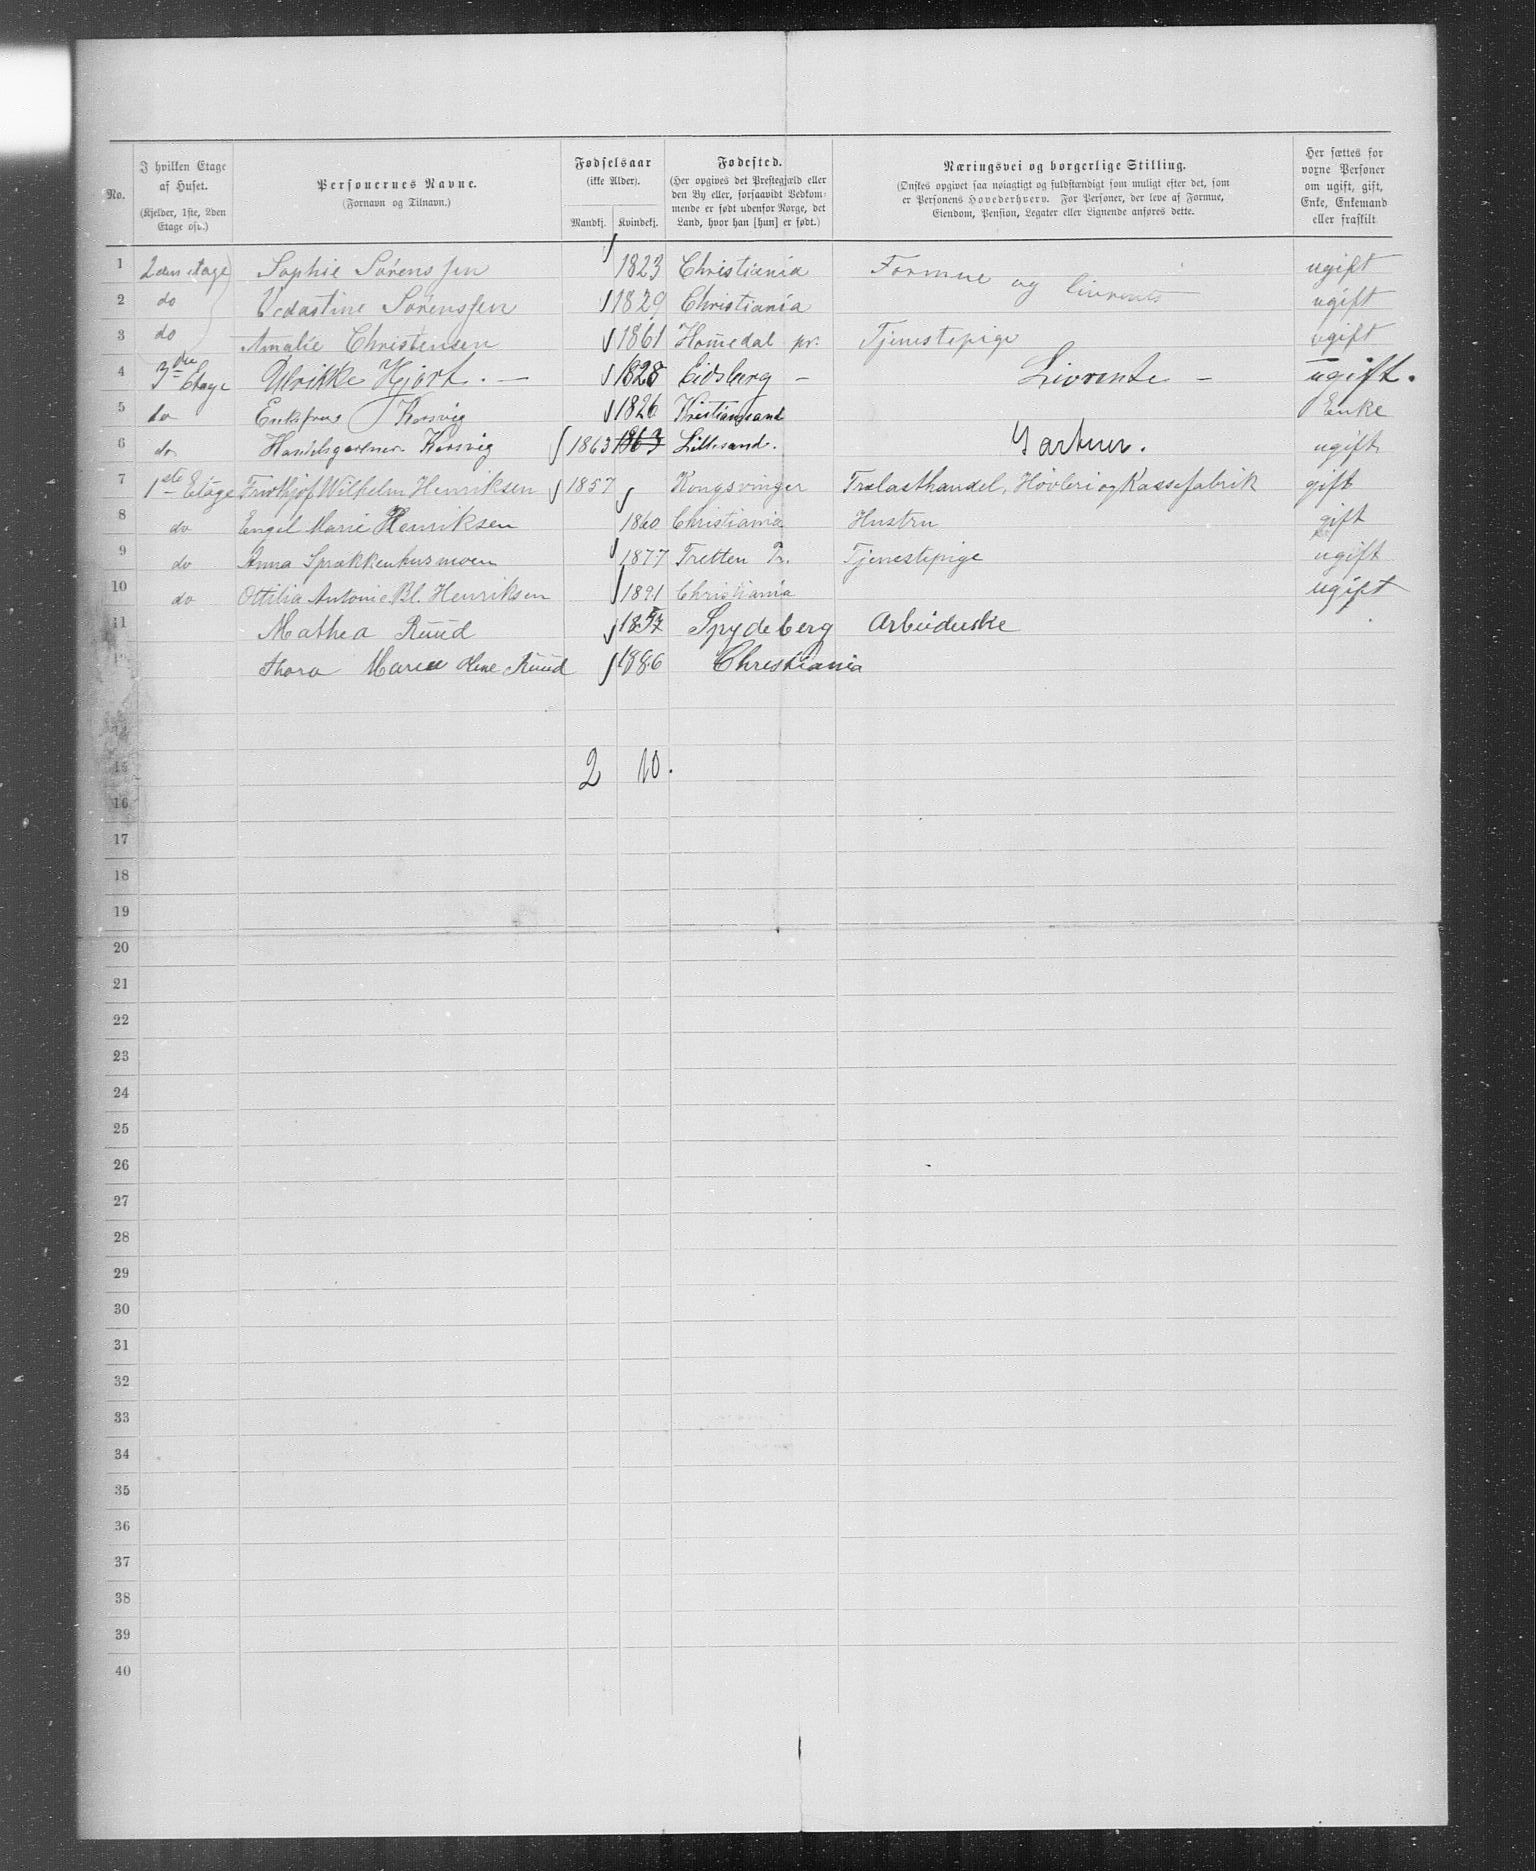 No. | I hvilken Etage af Huset. (Kjelder, 1ste, 2den Etage osv.) | Personernes Navne. (Fornavn og Tilnavn.) | Fødselsaar (ikke Alder). Mandkj. Kvindekj. | Fødested. (Her opgives det Prestegjæld eller den By eller, forsaavidt Vedkommende er født udenfor Norge, det Land, hvor han [hun] er født.) | Næringsvei og borgerlige Stilling. (Ønskes opgivet saa nøiagtigt og fuldstændigt som muligt efter det, som er Personens Hovederhverv. For Personer, der leve af Formue, Eiendom, Pension, Legater eller Lignende anføres dette. | Her sættes for voxne Personer om ugift, gift, Enke, Enkemand eller fraskilt
1 2den etage Sophie Sørenssen 1823 Christiania Formue og livrente ugift
2 do Vedastine Sørenssen 1829 Christiania ugift
3 do Amalie Christensen 1861 Homedal pr. Tjenestepige ugift
4 3die Etage Ulrikke Hjort. — 1828 Eidsberg – Livrente – ugift.
5 do Enkefrue Korsvig 1826 Kristiansand Enke
6 do Handelsgartner Korsvig 1863 1863 Lillesand. Gartner. ugift
7 1ste Etage Frithjof Wilhelm Henriksen 1857 Kongsvinger Trælasthandel, Høvleri og Kassefabrik gift
8 do Engel Marie Henriksen 1860 Christiania Hustru gift
9 do Anna Sprækkenhusmoen 1877 Tretten Pr. Tjenestepige ugift
10 do Ottilia Antonie Bl. Henriksen 1891 Christiania ugift
11 Mathea Ruud 1857 Spydeberg Arbeiderske
12 Thora Marie Oline Ruud 1886 Christiania
14
15 2 10.
16
17
18
19
20
21
22
23
24
25
26
27
28
29
30
31
32
33
34
35
36
37
38
39
40